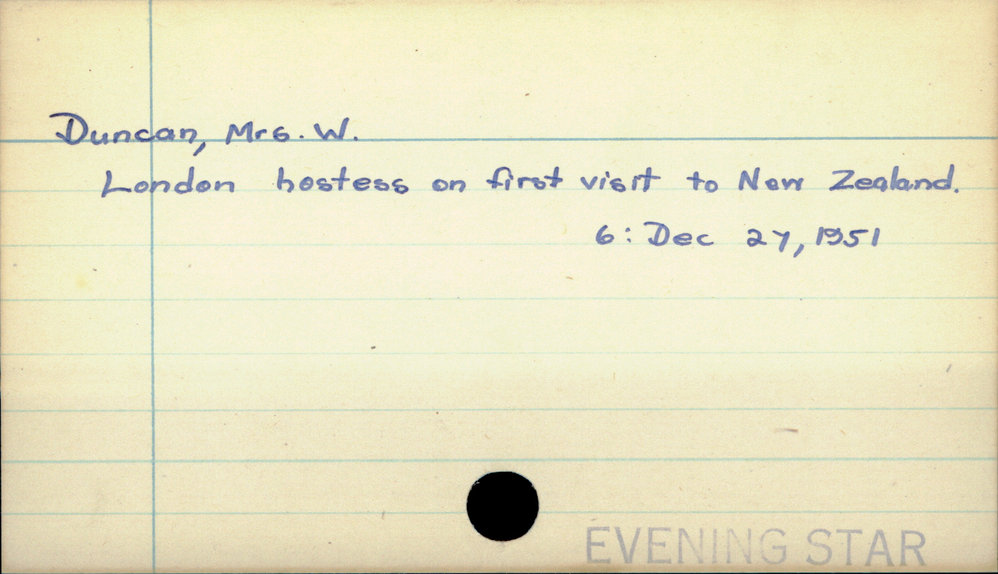 Duncan, Mrs. W.
London hostess on first visit to New Zealand.
6: Dec 27, 1951
EVENING STAR